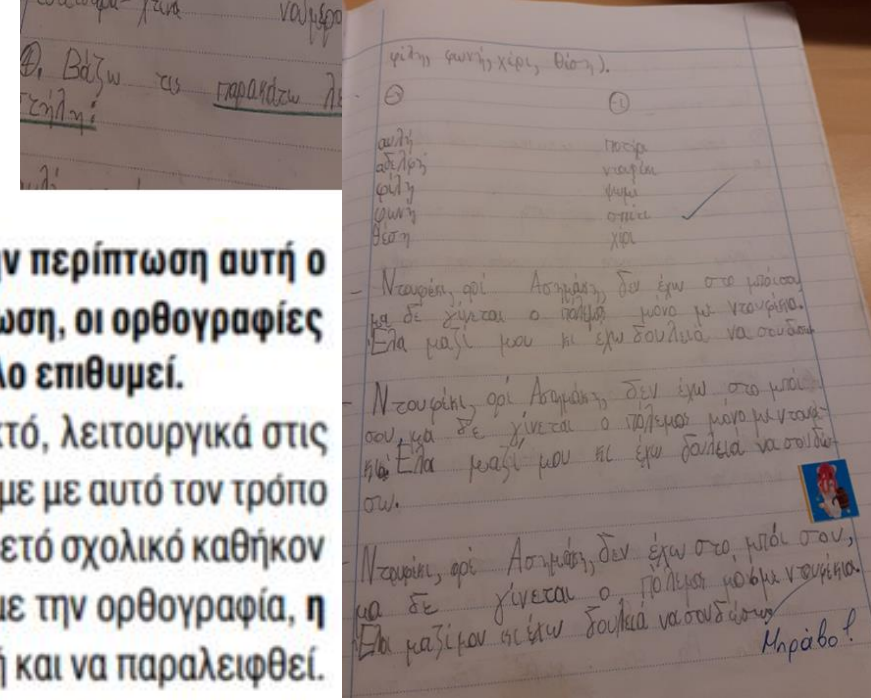 ναυμερο
4. Βάζω τις παρακάτω λε
στήλη:
ν περίπτωση αυτή ο
ωση, οι ορθογραφίες
λο επιθυμεί.
κτό, λειτουργικά στις
με με αυτό τον τρόπο
ετό σχολικό καθήκον
με την ορθογραφία, η
ή και να παραλειφθεί.
φίλη, φωνή, χέρι, θέση).
-η -ι
αυλή ποτήρι
αδελφή ντουφέκι
φίλη ψωμί
φωνή σπίτι
θέση χέρι
- Ντουφέκι, ορέ Ασημάκη, δεν έχω στο μπόι σου
μα δε γίνεται ο πόλεμος μόνο με ντουφέκια.
Έλα μαζί μου κι έχω δουλειά να σου δώσω
- Ντουφέκι, ορέ Ασημάκη, δεν έχω στο μπόι
σου, μα δε γίνεται ο πόλεμος μόνο με ντουφέ-
κια. Έλα μαζί μου κι έχω δουλειά να σου δώ-
σω.
- Ντουφέκι, ορέ Ασημάκη, δεν έχω στο μπόι σου,
μα δε γίνεται ο πόλεμος μόνο με ντουφέκια.
Έλα μαζί μου κι έχω δουλειά να σου δώσω
Μπράβο!